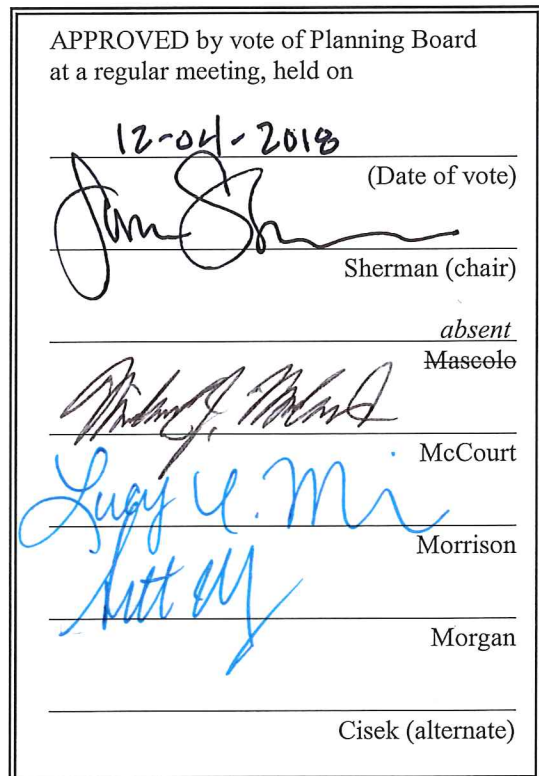 APPROVED by vote of Planning Board
at a regular meeting, held on
12-04-2018
(Date of vote)
Sherman (chair)
absent
Mascolo
McCourt
Lucy
Morrison
Morgan
Cisek (alternate)